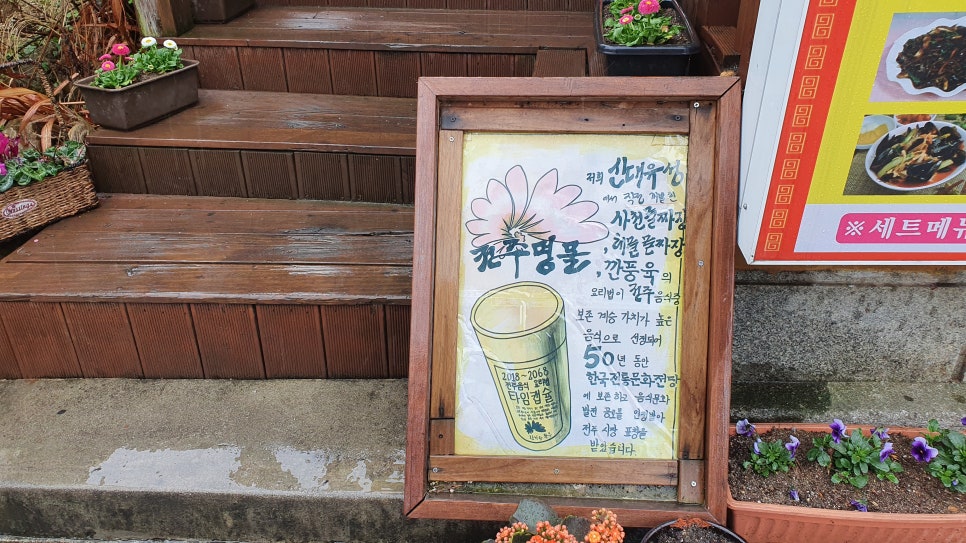 전주명물
저희 산대유성
에서 직접 개발한
사천물짜장
, 해물물짜장
, 깐풍육의
요리법이 전주음식중
보존 계승 가치가 높은
음식으로 선정되어
50년 동안
한국전통문화전당
에 보존하고 음식문화
발전 공로를 인정받아
전주시장 표창을
받았습니다.
2018~2068
전주음식 요리법
타임캡슐
※세트메뉴